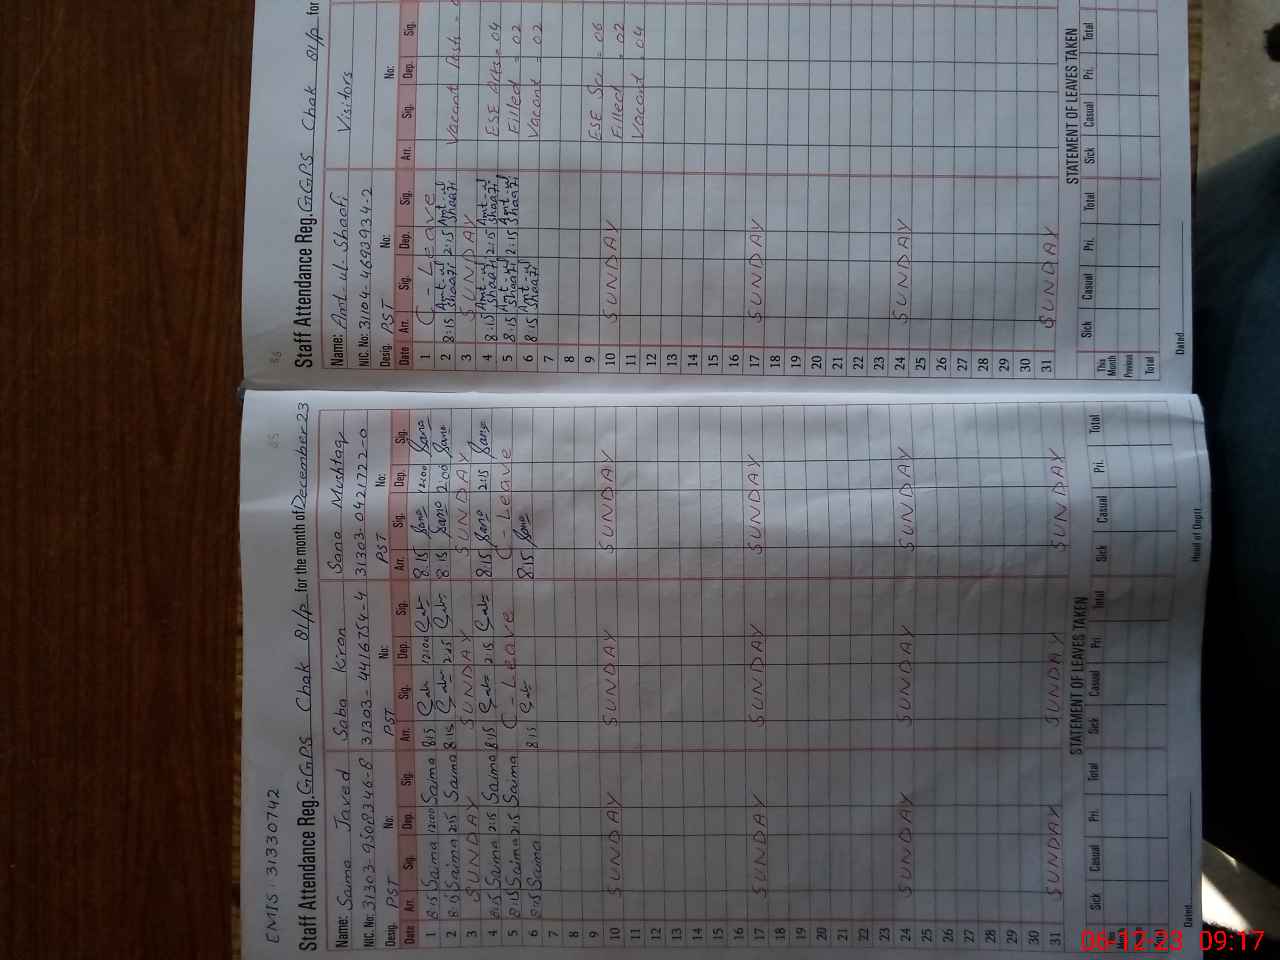 EMIS: 31330742
Staff Attendance Reg. GGPS Chak 81/p for the month of December 23
Name: Saima Javed Saba Kiran Sana Mushtaq
NIC. No: 31303-9508346-8 31303-4416754-4 31303-0421722-0
Desig. PST No: PST No: PST No:
Date Arr. Sig. Dep. Sig. Arr. Sig. Dep. Sig. Arr. Sig. Dep. Sig.
1 8:15 Saima 12:00 Saima 8:15 12:00 8:15 Sana 12:00 Sana
2 8:15 Saima 2:15 Saima 8:15 2:15 8:15 Sana 2:00 Sana
3 SUNDAY SUNDAY SUNDAY
4 8:15 Saima 2:15 Saima 8:15 2:15 8:15 Sana 2:15 Sana
5 8:15 Saima 2:15 Saima C-Leave C-Leave
6 8:15 Saima 8:15 8:15 Sana
7
8
9
10 SUNDAY SUNDAY SUNDAY
11
12
13
14
15
16
17 SUNDAY SUNDAY SUNDAY
18
19
20
21
22
23
24 SUNDAY SUNDAY SUNDAY
25
26
27
28
29
30
31 SUNDAY SUNDAY SUNDAY
STATEMENT OF LEAVES TAKEN
Sick Casual Pri. Total Sick Casual Pri. Total Sick Casual Pri. Total
Dated Head of Deptt.
Staff Attendance Reg. GGPS Chak 81/p for
Name: Amt-ul-Shaafi Visitors
NIC. No: 31104-4693934-2
Desig. PST No: No:
Date Arr. Sig. Dep. Sig. Arr. Sig. Dep. Sig.
1 C-Leave
2 8:15 Amt-ul Shaafi 2:15 Amt-ul Shaafi Vacant
3 SUNDAY
4 8:15 Amt-ul Shaafi 2:15 Amt-ul Shaafi ESE Arts = 04
5 8:15 Amt-ul Shaafi 2:15 Amt-ul Shaafi Filled = 02
6 8:15 Amt-ul Shaafi Vacant = 02
7
8
9 ESE Sci = 06
10 SUNDAY Filled . 02
11 Vacant . 04
12
13
14
15
16
17 SUNDAY
18
19
20
21
22
23
24 SUNDAY
25
26
27
28
29
30
31 SUNDAY
STATEMENT OF LEAVES TAKEN
Sick Casual Pri. Total Sick Casual Pri. Total
This Month
Previous
Total
Dated
06-12-23 09:17